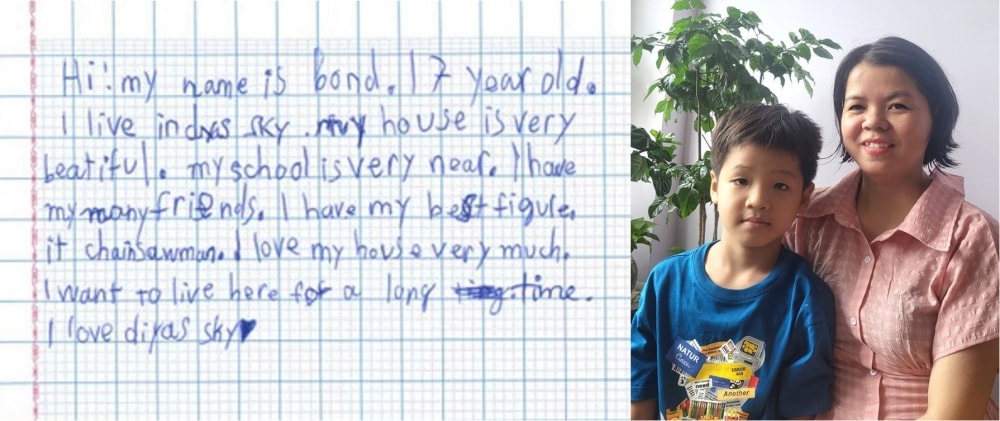 Hi! my name is bond. I 7 year old.
I live in diyas sky. my house is very
beatiful. my school is very near. I have
my many friends. I have my best figure,
it chainsawman. I love my house very much.
I want to live here for a long time.
I love diyas sky♥
NATUR
need
Another